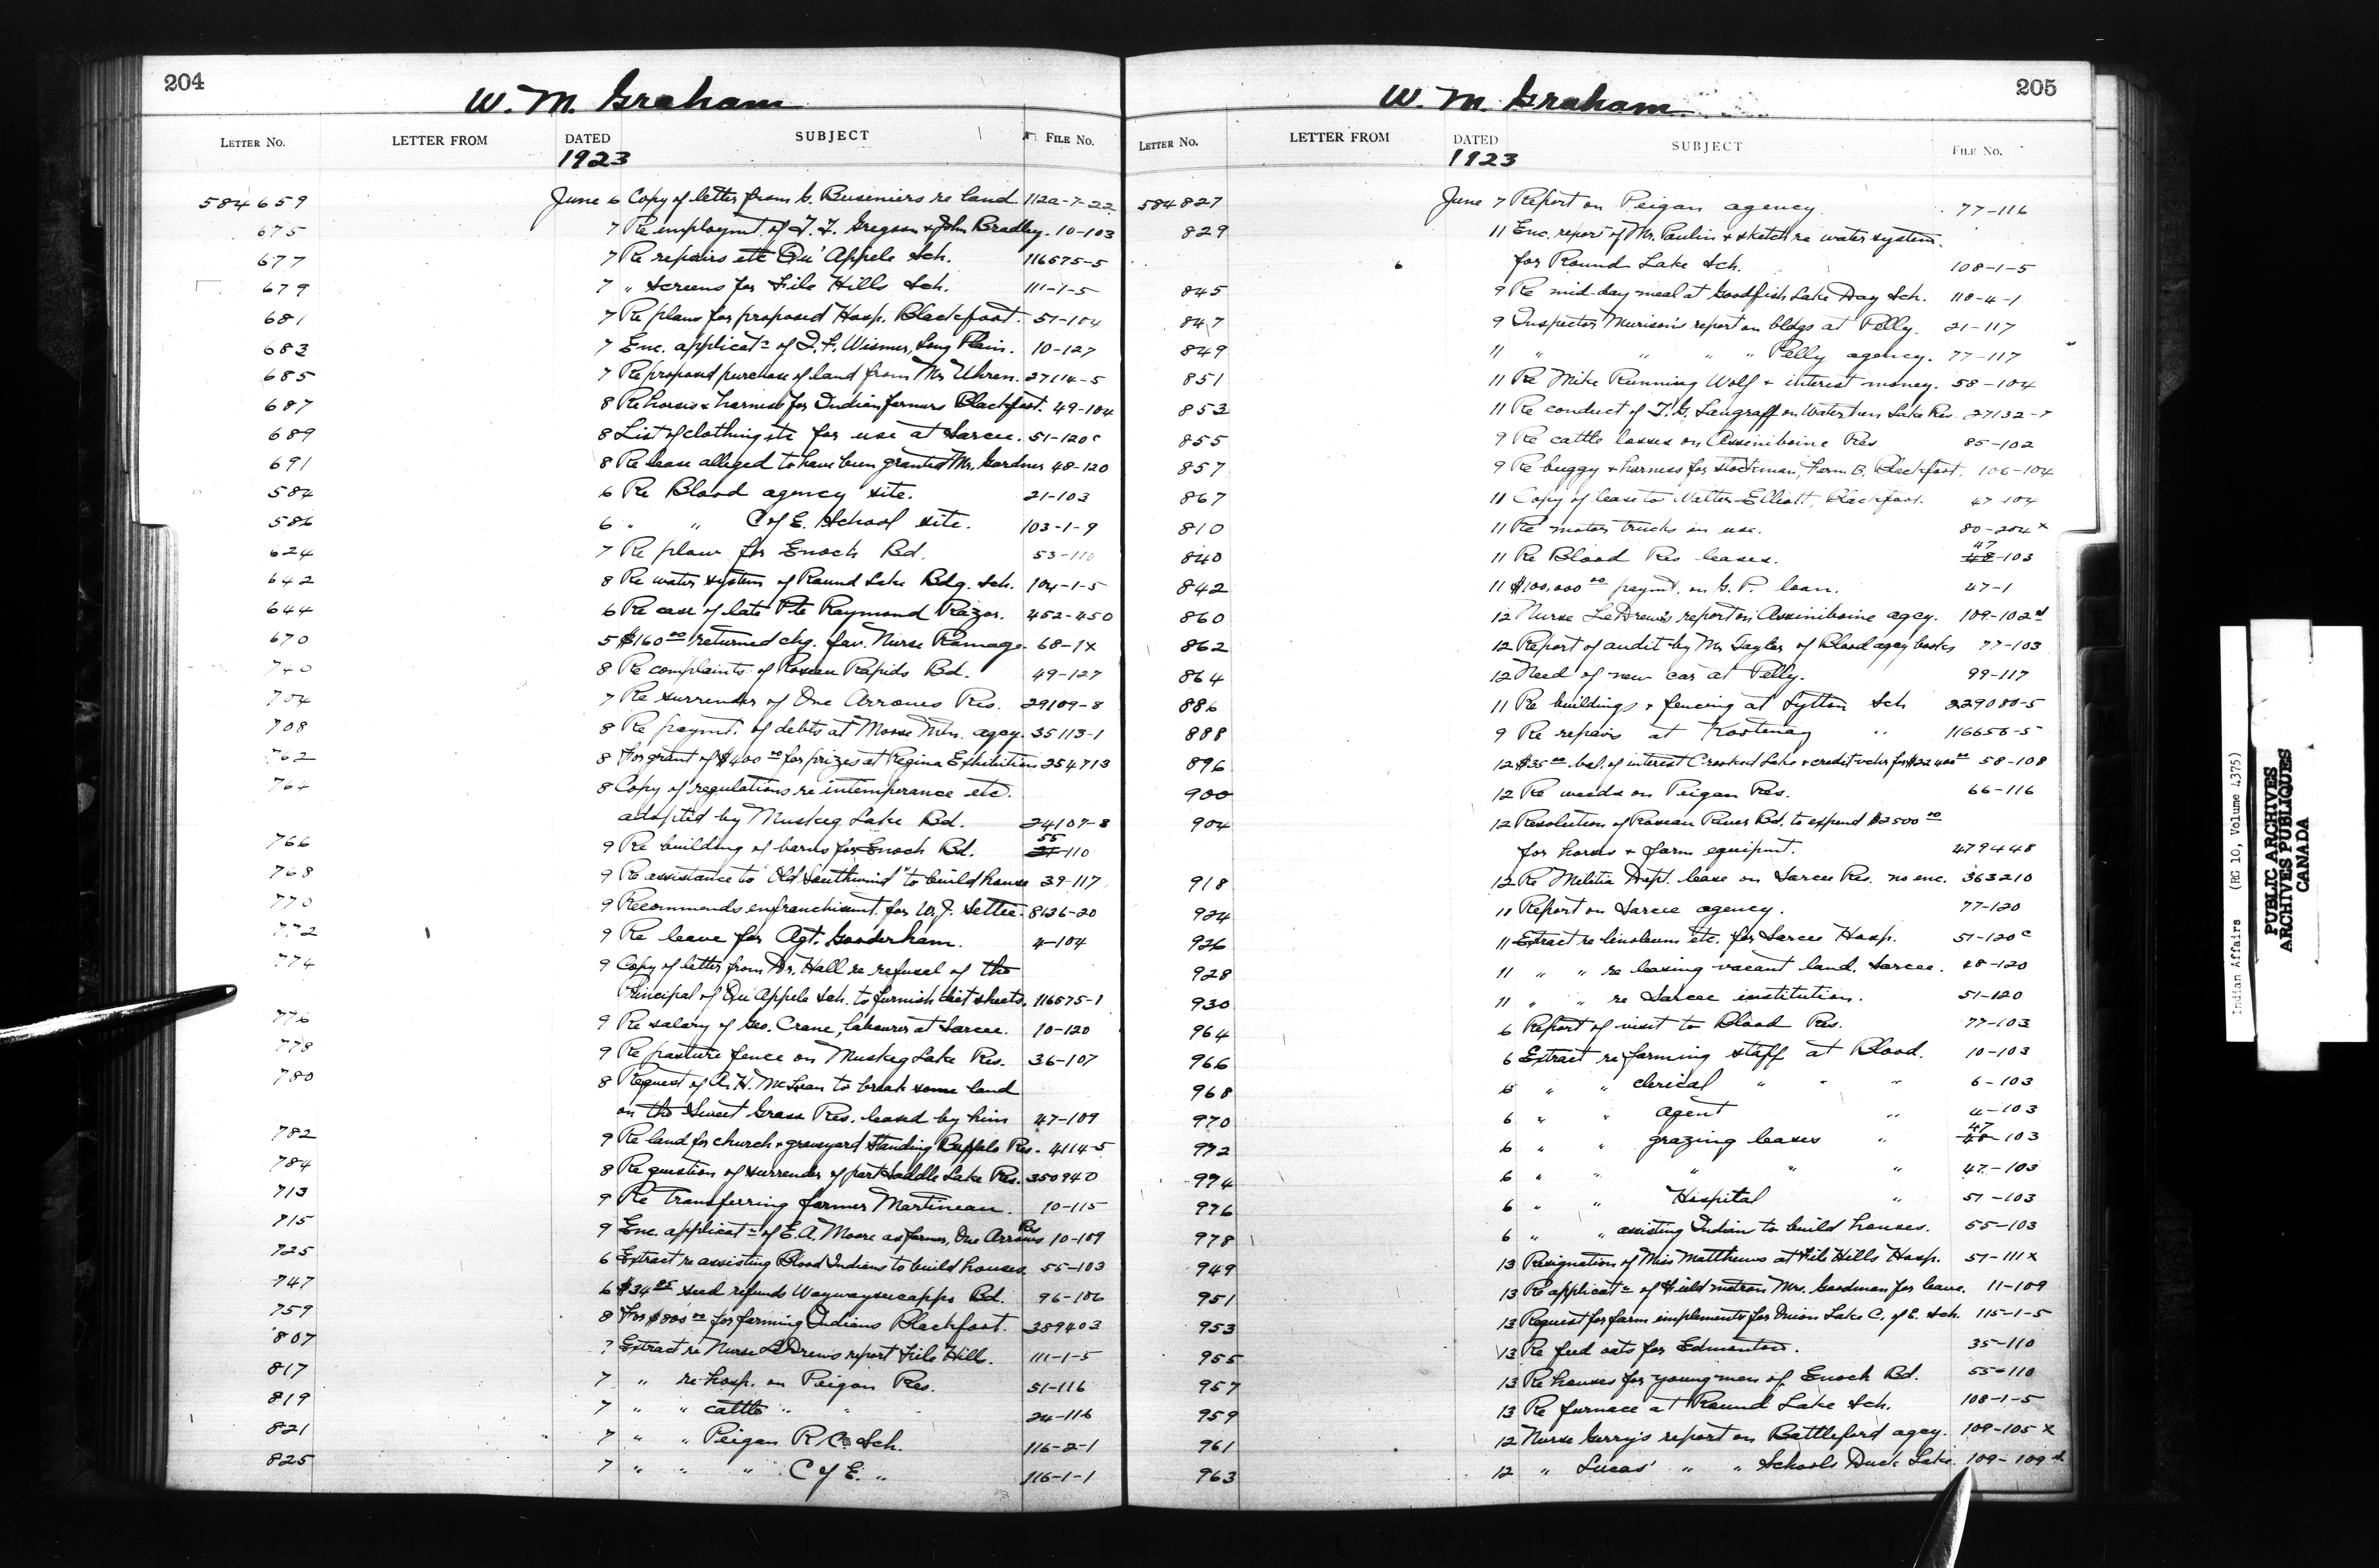 204
W. M. Graham
LETTER NO. LETTER FROM DATED SUBJECT FILE NO.
1923
584659 June 6 Copy of letter from G. Buseniers re land. 112a-7-22
675 7 Re employmt. of J. F. Gregson & John Bradley. 10-103
677 7 Re repairs etc Qu'Appele Sch. 116575-5
679 7 " Screens for File Hills Sch. 111-1-5
681 7 Re plans for proposed Hosp. Blackfoot. 51-104
683 7 Enc. applicatn of D. F. Wismer, Long Plain. 10-127
685 7 Re proposed purchase of land from Mr Uhren. 27114-5
687 8 Re horses & harness for Indian farmers Blackfoot. 49-104
689 8 List of clothing etc for use at Sarcee. 51-120c
691 8 Re lease alleged to have been granted Mr. Gardner 48-120
584 6 Re Blood agency site. 21-103
586 6 " " C of E. School site. 103-1-9
624 7 Re plow for Enoch Bd. 53-110
642 8 Re water system of Round Lake Bdg. Sch. 104-1-5
644 6 Re case of late Pte Raymond Razor. 452-450
670 5 $160.00 returned chq. fav. Nurse Ramage. 68-1x
740 8 Re complaints of Roseau Rapids Bd. 49-127
704 7 Re surrender of One Arrows Res. 29109-8
708 8 Re paymt. of debts at Moose Mtn. agcy. 35113-1
762 8 For grant of $400.00 for prizes at Regina Exhibition 254713
764 8 Copy of regulations re intemperance etc.
adopted by Muskeg Lake Bd. 24107-8
766 9 Re building of barns for Enoch Bd. 55 21-110
768 9 Re assistance to "Old Southwind" to build house 39-117
770 9 Recommends enfranchismt. for W. J. Settee. 8126-20
772 9 Re leave for Agt. Gooderham. 4-104
774 9 Copy of letter from Dr. Hall re refusal of the
Principal of Qu'Appele Sch. to furnish diet sheets. 116575-1
776 9 Re salary of Geo. Crane, labourer at Sarcee. 10-120
778 9 Re pasture fence on Muskeg Lake Res. 36-107
780 8 Request of A. H. McLean to break some land
on the Sweet Grass Res. leased by him 47-109
782 9 Re land for church & graveyard Standing Buffalo Res. 4114-5
784 8 Re question of surrender of part Saddle Lake Res. 350940
713 9 Re transferring farmer Martineau. 10-115
715 9 Enc. applicatn of E. A. Moore as farmer, One Arrows Res 10-109
725 6 Extract re assisting Blood Indians to build houses. 55-103
747 6 $34.25 seed refunds Waywayseecappo Bd. 96-106
759 8 For $800.00 for farming Indians Blackfoot. 389403
807 7 Extract re Nurse LeDrews report File Hill. 111-1-5
817 7 " re hosp. on Peigan Res. 51-116
819 7 " " cattle " " 24-116
821 7 " " Peigan R. C. Sch. 116-2-1
825 7 " " " C of E. " 116-1-1
205
W. M. Graham
LETTER NO. LETTER FROM DATED SUBJECT FILE NO.
1923
584827 June 7 Report on Peigan agency. 77-116
829 11 Enc. report of Mr. Paulin & sketch re water system.
for Round Lake Sch. 108-1-5
845 9 Re mid-day meal at Goodfish Lake Day Sch. 118-4-1
847 9 Inspector Murison's report on bldgs at Pelly. 21-117
849 11 " " " " Pelly agency. 77-117
851 11 Re Mike Running Wolf & interest money. 58-104
853 11 Re conduct of T. G. Langraff on Waterhen Lake Res. 27132-7
855 9 Re cattle losses on Assiniboine Res 85-102
857 9 Re buggy & harness for stockman, Farm B, Blackfoot. 106-104
867 11 Copy of lease to Walter Elliott, Blackfoot. 47-104
810 11 Re motor trucks in use. 80-204x
840 11 Re Blood Res leases. 47 48-103
842 11 $100,000.00 paymt. on G. P. loan. 47-1
860 12 Nurse LeDrew's report on Assiniboine agcy. 109-102
862 12 Report of audit by Mr Taylor of Blood agcy books 77-103
864 12 Need of new car at Pelly. 99-117
886 11 Re buildings & fencing at Lytton Sch 229080-5
888 9 Re repairs at Kootenay " 116656-5
896 12 $35.00 bal. of interest Crooked Lake & credit vchr for $22400.00 58-108
900 12 Re weeds on Peigan Res. 66-116
904 12 Resolution of Roseau River Bd. to expend $2500.00
for horses & farm equipmt. 479448
918 12 Re Militia Dept. lease on Sarcee Res. no enc. 363210
924 11 Report on Sarcee agency. 77-120
926 11 Extract re linoleum etc. for Sarcee Hosp. 51-120c
928 11 " " re leasing vacant land. Sarcee. 48-120
930 11 " " re Sarcee institution. 51-120
964 6 Report of visit to Blood Res. 77-103
966 6 Extract re farming staff at Blood. 10-103
968 6 " " clerical " " " 6-103
970 6 " " agent " 4-103
972 6 " " grazing leases " 47 48-103
974 6 " " " " " 47-103
976 6 " " Hospital " 51-103
978 6 " " assisting Indian to build houses. 55-103
949 13 Resignation of Miss Matthews at File Hills Hosp. 51-111x
951 13 Re applicatn of field matron Mrs. Goodman for leave. 11-109
953 13 Request for farm implements for Onion Lake C. of E. Sch. 115-1-5
955 13 Re feed oats for Edmonton. 35-110
957 13 Re houses for young men of Enoch Bd. 55-110
959 13 Re furnace at Round Lake Sch. 108-1-5
961 12 Nurse Gerry's report on Battleford agcy. 109-105x
963 12 " Lucas' " " Schools Duck Lake. 109-109
Indian Affairs (RG 10, Volume 4375)
PUBLIC ARCHIVES
ARCHIVES PUBLIQUES
CANADA